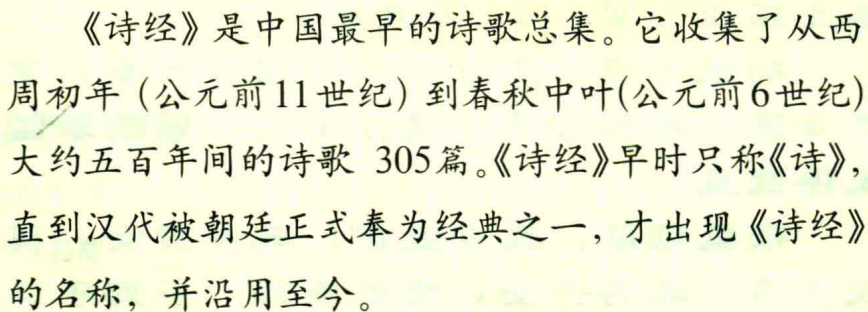 《诗经》是中国最早的诗歌总集。它收集了从西
周初年（公元前11世纪）到春秋中叶(公元前6世纪)
大约五百年间的诗歌 305篇。《诗经》早时只称《诗》,
直到汉代被朝廷正式奉为经典之一，才出现《诗经》
的名称，并沿用至今。